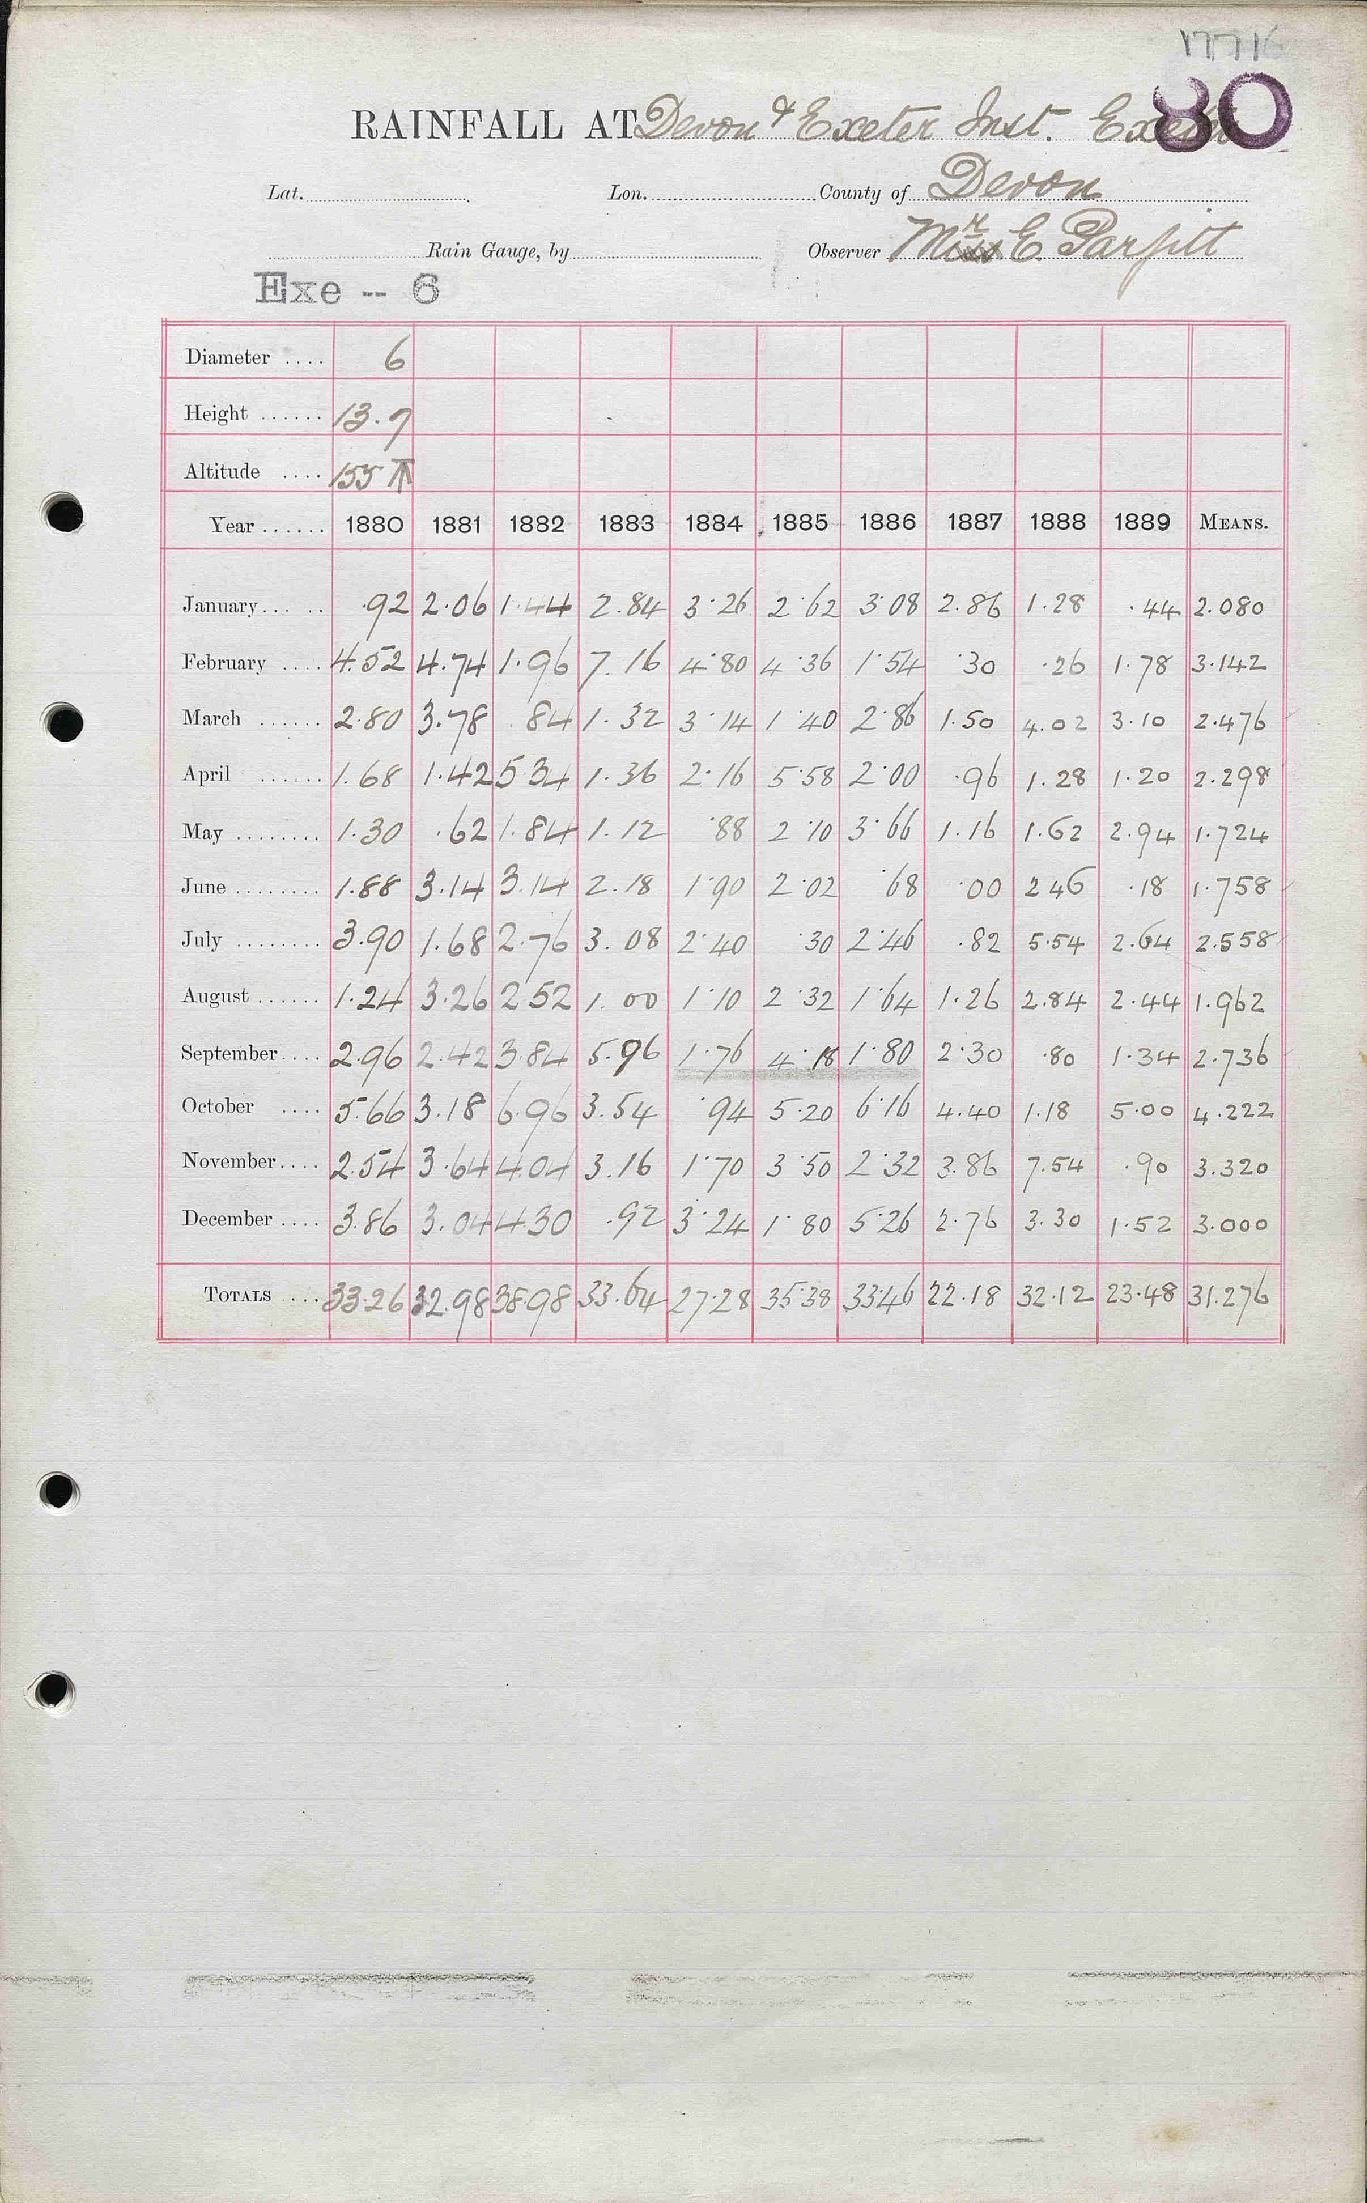 17716
80
RAINFALL AT Devon & Exeter Inst. Exeter
Lat. Lon. County of Devon
Rain Gauge, by Observer Mr E Parfitt
Exe -- 6
Diameter .... 6
Height ...... 13.7
Altitude .... 155
Year ...... 1880 1881 1882 1883 1884 1885 1886 1887 1888 1889 MEANS.
January...... .92 2.06 1.44 2.84 3.26 2.62 3.08 2.86 1.28 .44 2.080
February .... 4.52 4.74 1.96 7.16 4.80 4.36 1.54 .30 .26 1.78 3.142
March ...... 2.80 3.78 84 1.32 3.14 1.40 2.86 1.50 4.02 3.10 2.476
April ...... 1.68 1.42 5 34 1.36 2.16 5.58 2.00 .96 1.28 1.20 2.298
May ........ 1.30 .62 1.84 1.12 .88 2.10 3.66 1.16 1.62 2.94 1.724
June ........ 1.88 3.14 3.14 2.18 1.90 2.02 .68 .00 2 46 .18 1.758
July ........ 3.90 1.68 2.76 3.08 2.40 .30 2.46 .82 5.54 2.64 2.558
August ...... 1.24 3.26 2 52 1.00 1.10 2.32 1.64 1.26 2.84 2.44 1.962
September.... 2.96 2.42 3.84 5.96 1.76 4.18 1.80 2.30 .80 1.34 2.736
October .... 5.66 3.18 6.96 3.54 .94 5.20 6.16 4.40 1.18 5.00 4.222
November.... 2.54 3.64 4.04 3.16 1.70 3.50 2.32 3.86 7.54 .90 3.320
December .... 3.86 3.04 4 30 .92 3.24 1.80 5.26 2.76 3.30 1.52 3.000
TOTALS .... 33.26 32.98 38.98 33.64 27.28 35.38 33.46 22.18 32.12 23.48 31.276